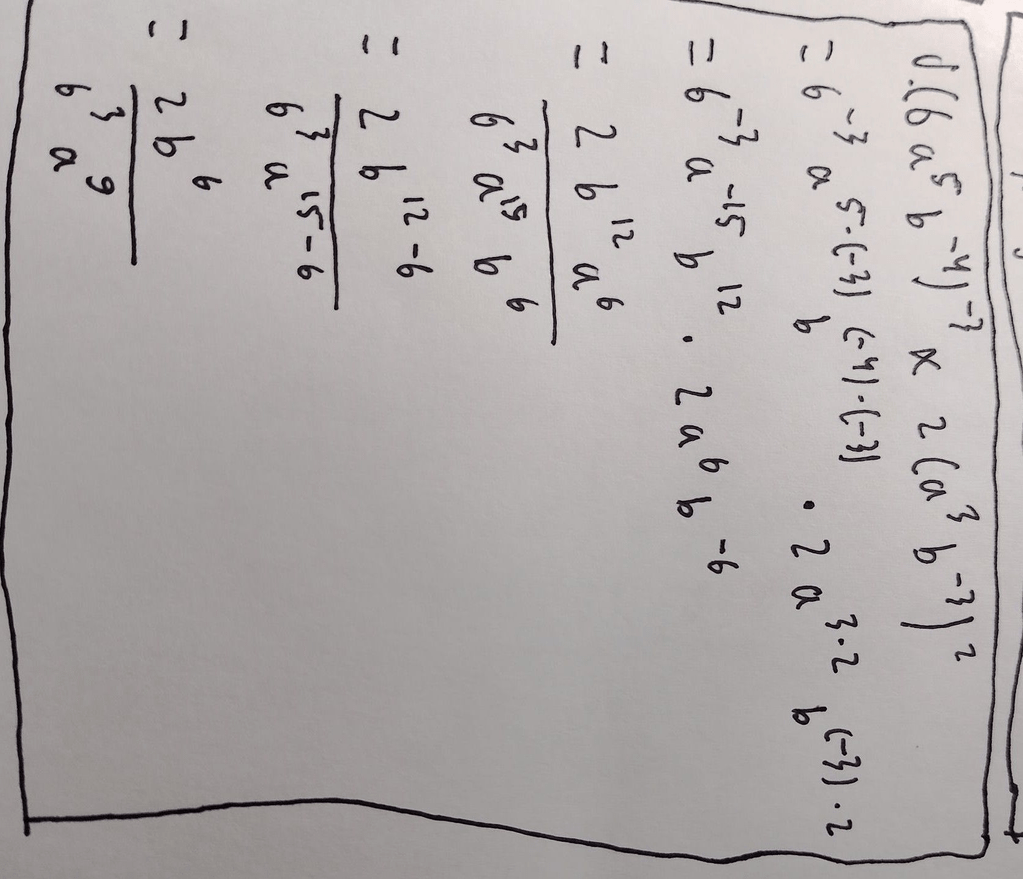 d.(6a⁵b⁻⁴)⁻³ x 2(a³b⁻³)²
= 6⁻³ a⁵·⁽⁻³⁾ b⁽⁻⁴⁾·⁽⁻³⁾ · 2a³·² b⁽⁻³⁾·²
= 6⁻³ a⁻¹⁵ b¹² · 2a⁶ b⁻⁶
= 2 b¹² a⁶
6³ a¹⁵ b⁶
= 2 b¹²⁻⁶
6³ a¹⁵⁻⁶
= 2 b⁶
6³ a⁹